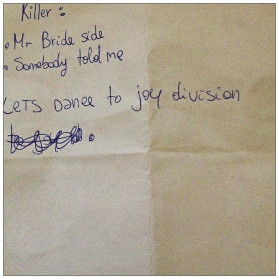 Killer:
• Mr Bride side
• Somebody told me
LETS Dance to joy division